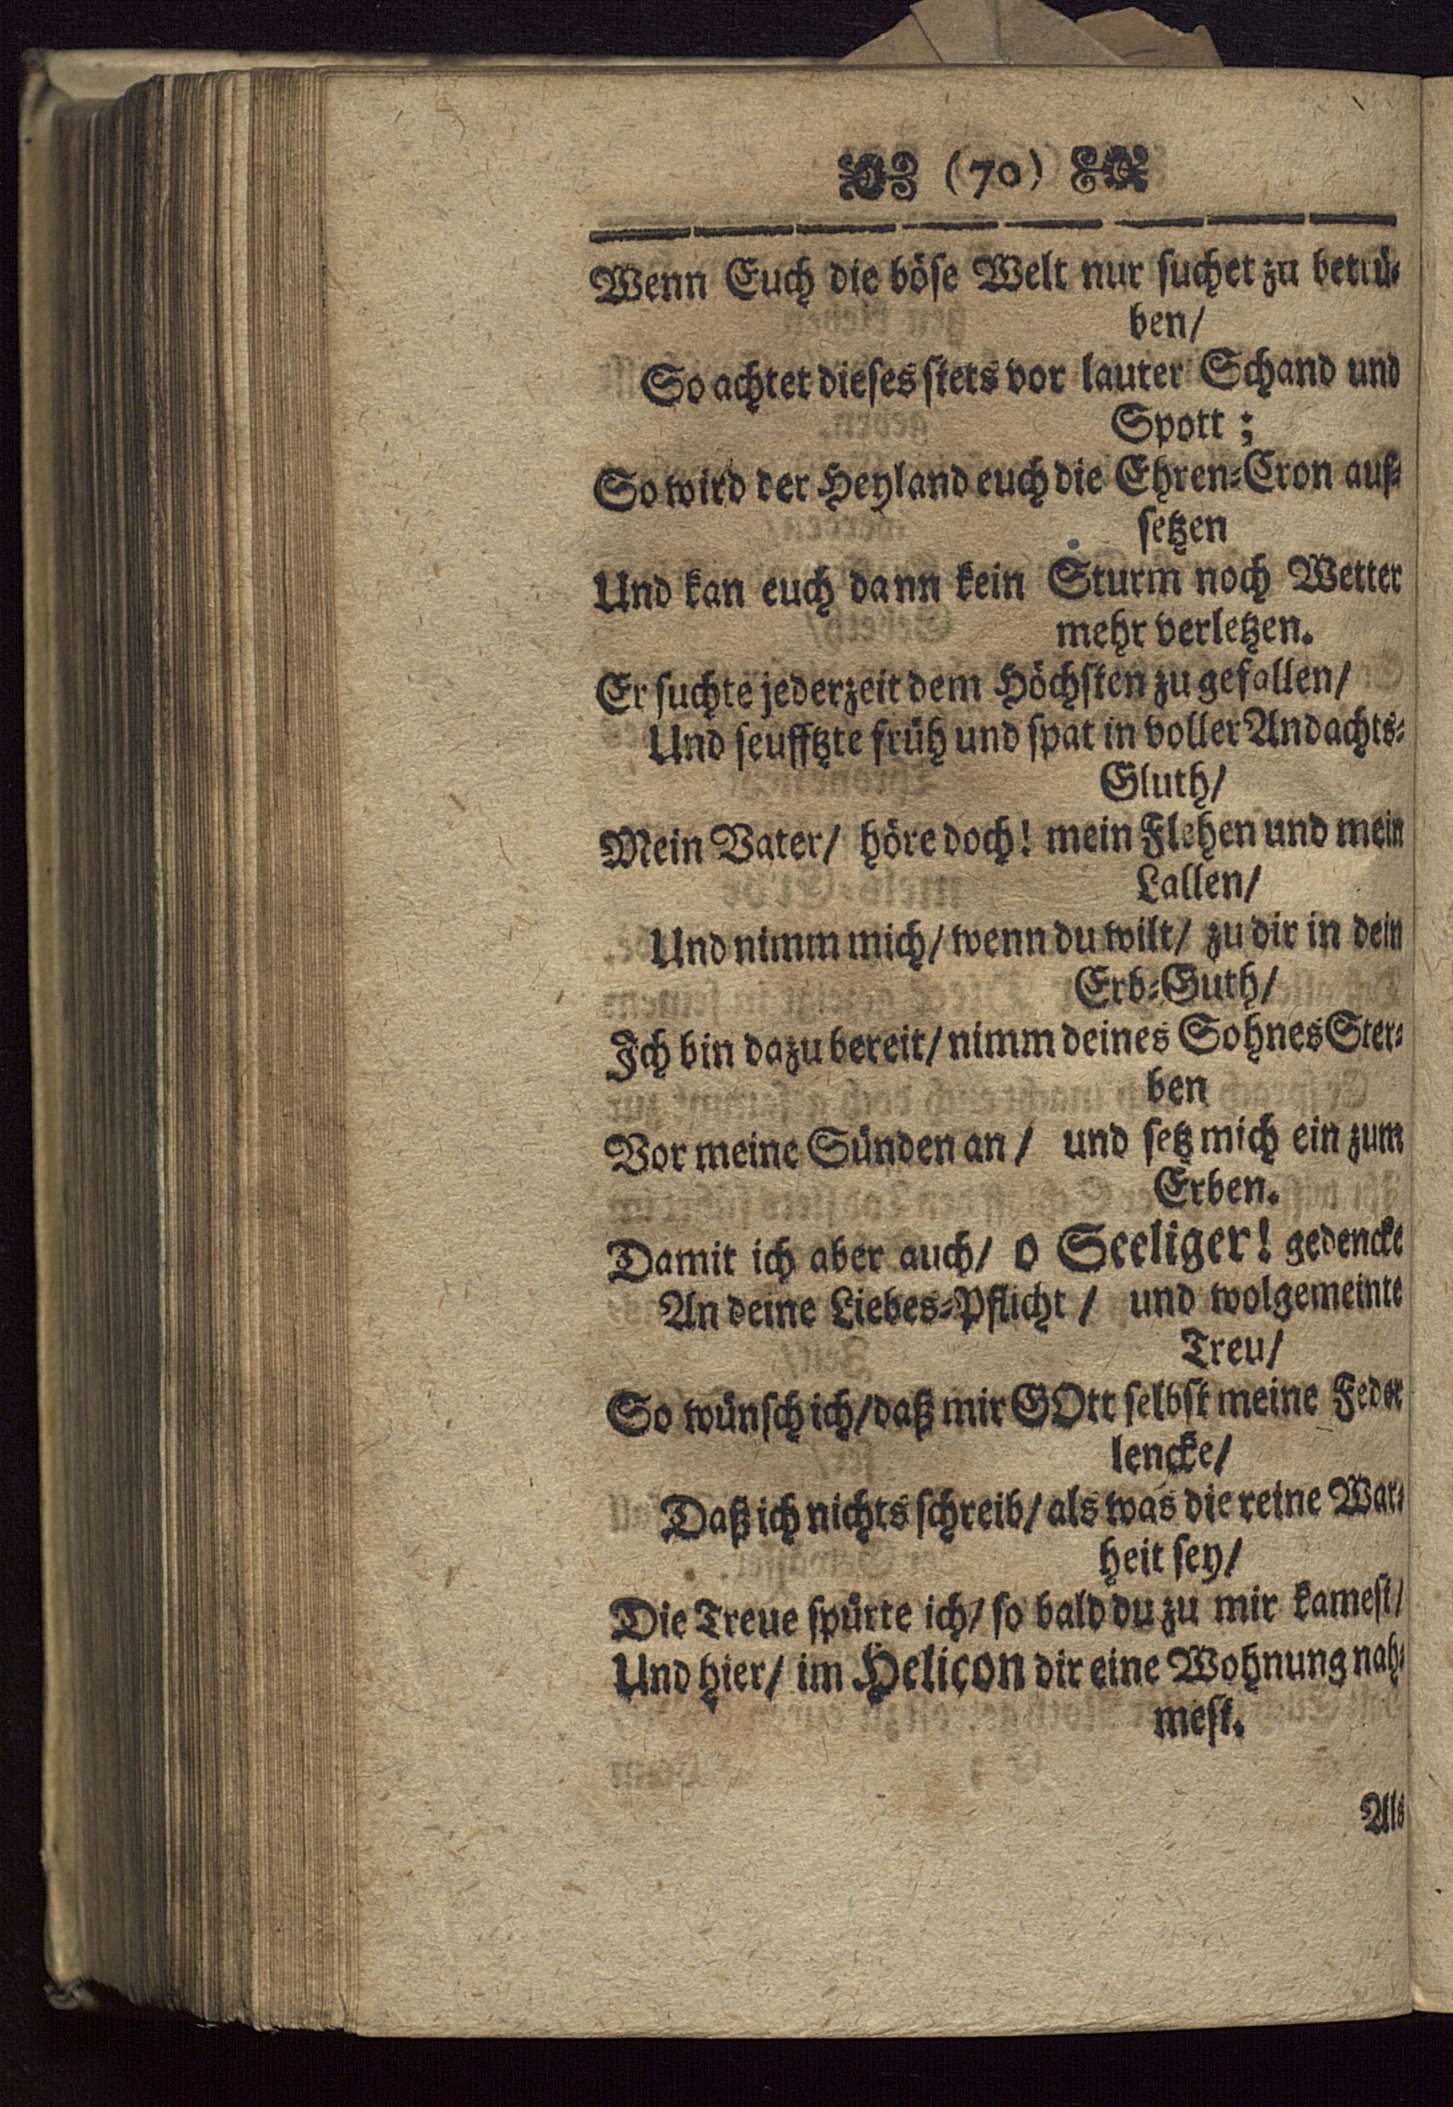 (70)
Wenn Euch die böse Welt nur suchet zu betrü-
ben/
So achtet dieses stets vor lauter Schand und
Spott ;
So wird der Heyland euch die Ehren-Cron auf-
setzen
Und kan euch dann kein Sturm noch Wetter
mehr verletzen.
Er suchte jederzeit dem Höchsten zu gefallen/
Und seufftzte früh und spat in voller Andachts-
Gluth/
Mein Vater/ höre doch! mein Flehen und mein
Lallen/
Und nimm mich/ wenn du wilt/ zu dir in dein
Erb-Guth/
Ich bin dazu bereit/ nimm deines Sohnes Ster-
ben
Vor meine Sünden an / und setz mich ein zum
Erben.
Damit ich aber auch/ o Seeliger! gedencke
An deine Liebes-Pflicht / und wolgemeinte
Treu/
So wünsch ich/ daß mir GOtt selbst meine Feder
lencke/
Daß ich nichts schreib/ als was die reine War-
heit sey/
Die Treue spürte ich/ so bald du zu mir kamest/
Und hier/ im Helicon dir eine Wohnung nah-
mest.
Als